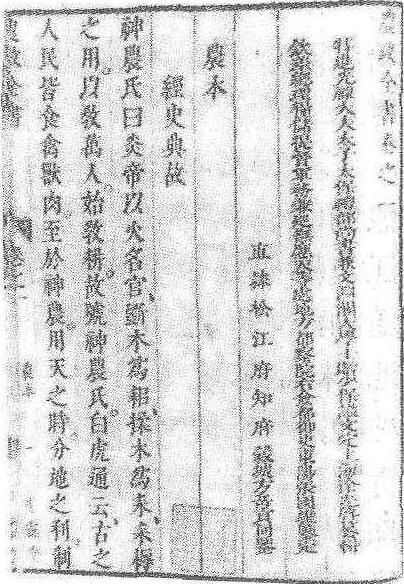 農政全書卷之一
特進光祿大夫太子太保禮部尚書兼文淵閣大學士贈少保謚文定上海徐光啟纂輯
欽差總理糧儲提督軍務兼巡撫應天等處地方都察院右僉都御史東陽張國維鑒定
直隸松江府知府穀城方岳貢同鑒
農本
經史典故
神農氏曰炎帝以火名官、斲木爲耜、揉木爲耒、耒耨
之用、以敎萬人、始敎耕、故號神農氏。白虎通云、古之
人民皆食禽獸肉。至於神農、用天之時、分地之利、制
農政全書 卷之一 農本 一